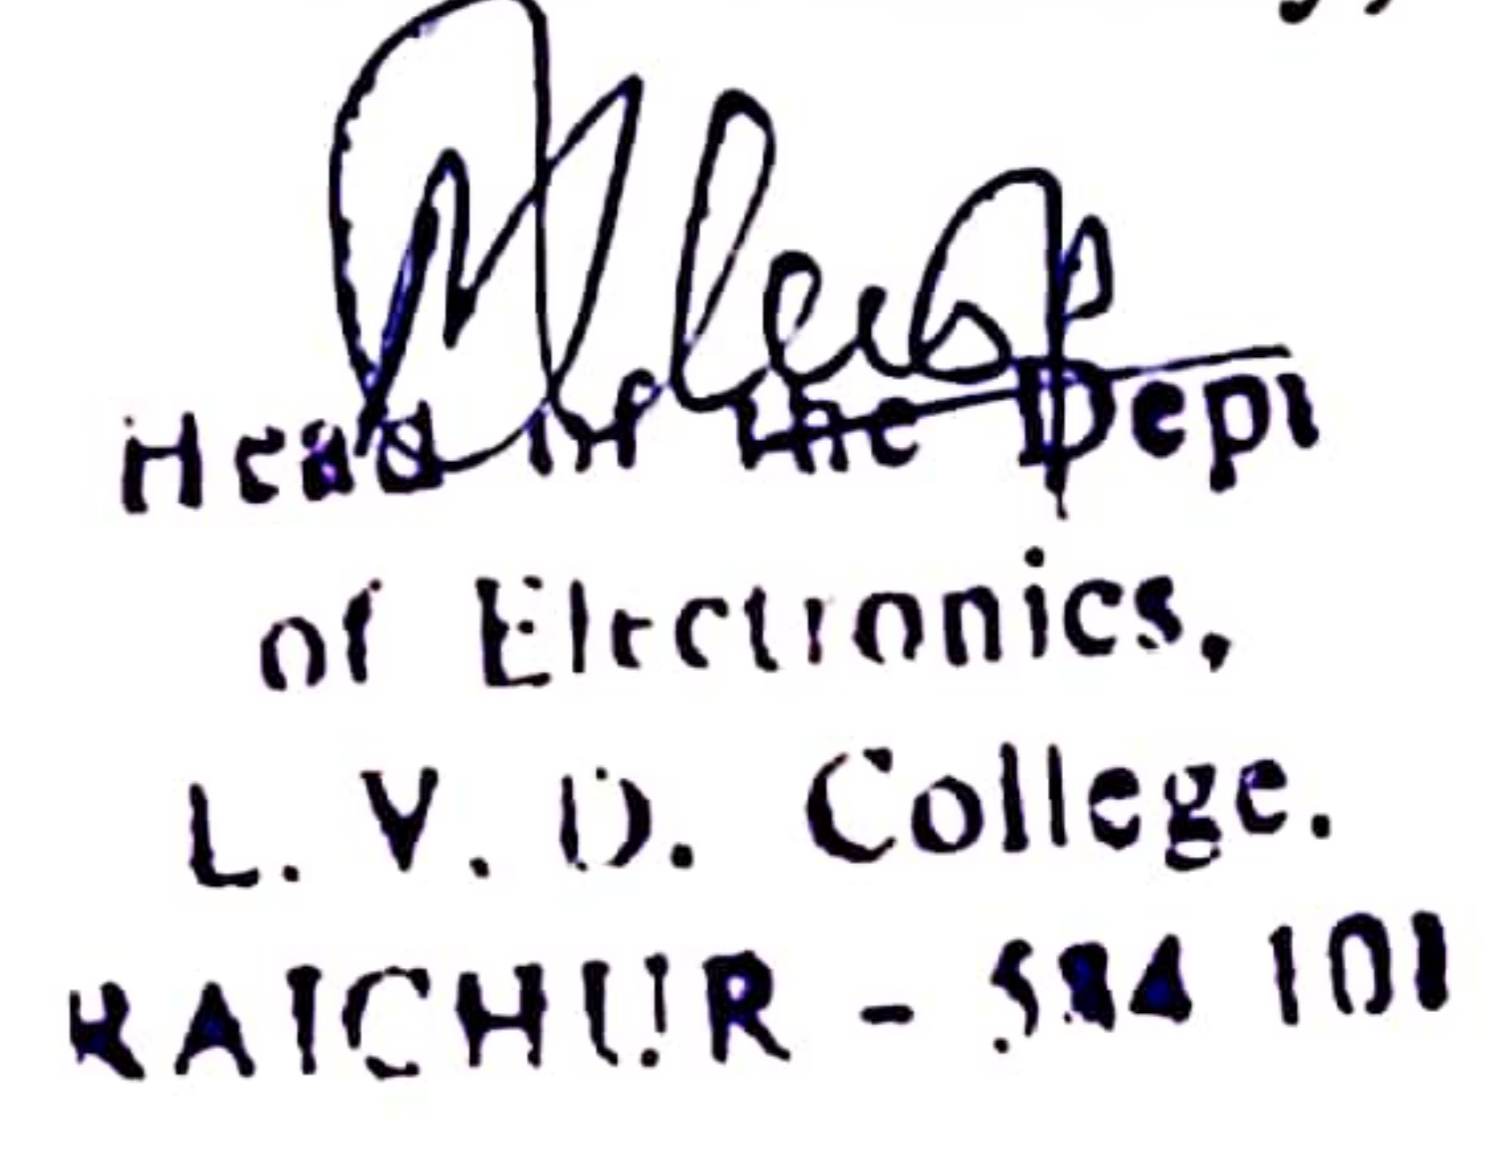 Head of the Dept
of Electronics,
L. V. D. College.
RAICHUR - 584 101